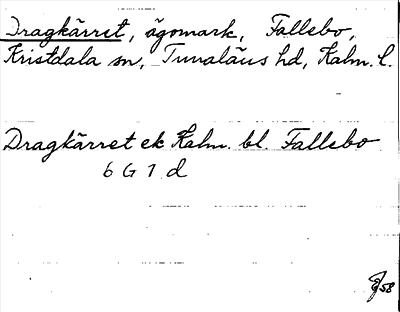 Dragkärret, ägomark, Fallebo,
Kristdala sn, Tunaläns hd, Kalm. l.
Dragkärret ek Kalm. bl. Fallebo
6 G 1 d
58